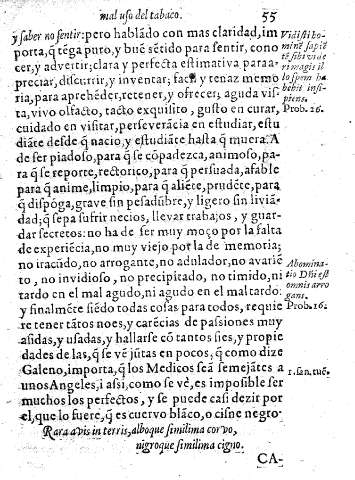 mal uso del tabaco. 55
y saber no sentir: pero hablãdo con mas claridad, im
porta, q̃ tẽga puro, y buẽ sẽtido para sentir, cono
cer, y advertir; clara y perfecta estimativa para a-
preciar, discurrir, y inventar; facil y tenaz memo
ria, para aprehẽder, retener, y ofrecer; aguda vis
ta, vivo olfacto, tacto exquisito, gusto en curar,
cuidado en visitar, perseverãcia en estudiar, estu
diãte desde q̃ nacio, y estudiãte hasta q̃ muera: A
de ser piadoso, para q̃ se cõpadezca, animoso, pa-
ra q̃ se reporte, rectorico, para q̃ persuada, afable
para q̃ anime, limpio, para q̃ aliẽte, prudẽte, para
q̃ dispõga, grave sin pesadũbre, y ligero sin livian
dad; q̃ sepa sufrir necios, llevar trabajos, y guar-
dar secretos: no ha de ser muy moço por la falta
de experiẽcia, no muy viejo por la de memoria;
no iracũdo, no arrogante, no adulador, no avariẽ
to, no invidioso, no precipitado, no timido, ni
tardo en el mal agudo, ni agudo en el mal tardo:
y finalmẽte siẽdo todas cosas para todos, requie
re tener tãtos noes, y carẽcias de passiones muy
asidas, y usadas, y hallarse cõ tantos sies, y propie
dades de las, q̃ se vẽ jũtas en pocos, q̃ como dize
Galeno, importa, q̃ los Medicos seã semejãtes a
unos Angeles, i assi, como se vè, es imposible ser
muchos los perfectos, y se puede casi dezir por
el, que lo fuere, q̃ es cuervo blãco, o cisne negro.
Rara avis in terris, alboque simillima corvo,
nigroque similima cigno.
CA-
Vidisti ho
minẽ sapiẽ
tẽ sibi vide
ri magis il
lo spem ha
bebit insi-
piens.
Prob. 26.
Abomina-
tio Dñi est
omnis arro
gans.
Prob. 16.
1. san. tuẽ.